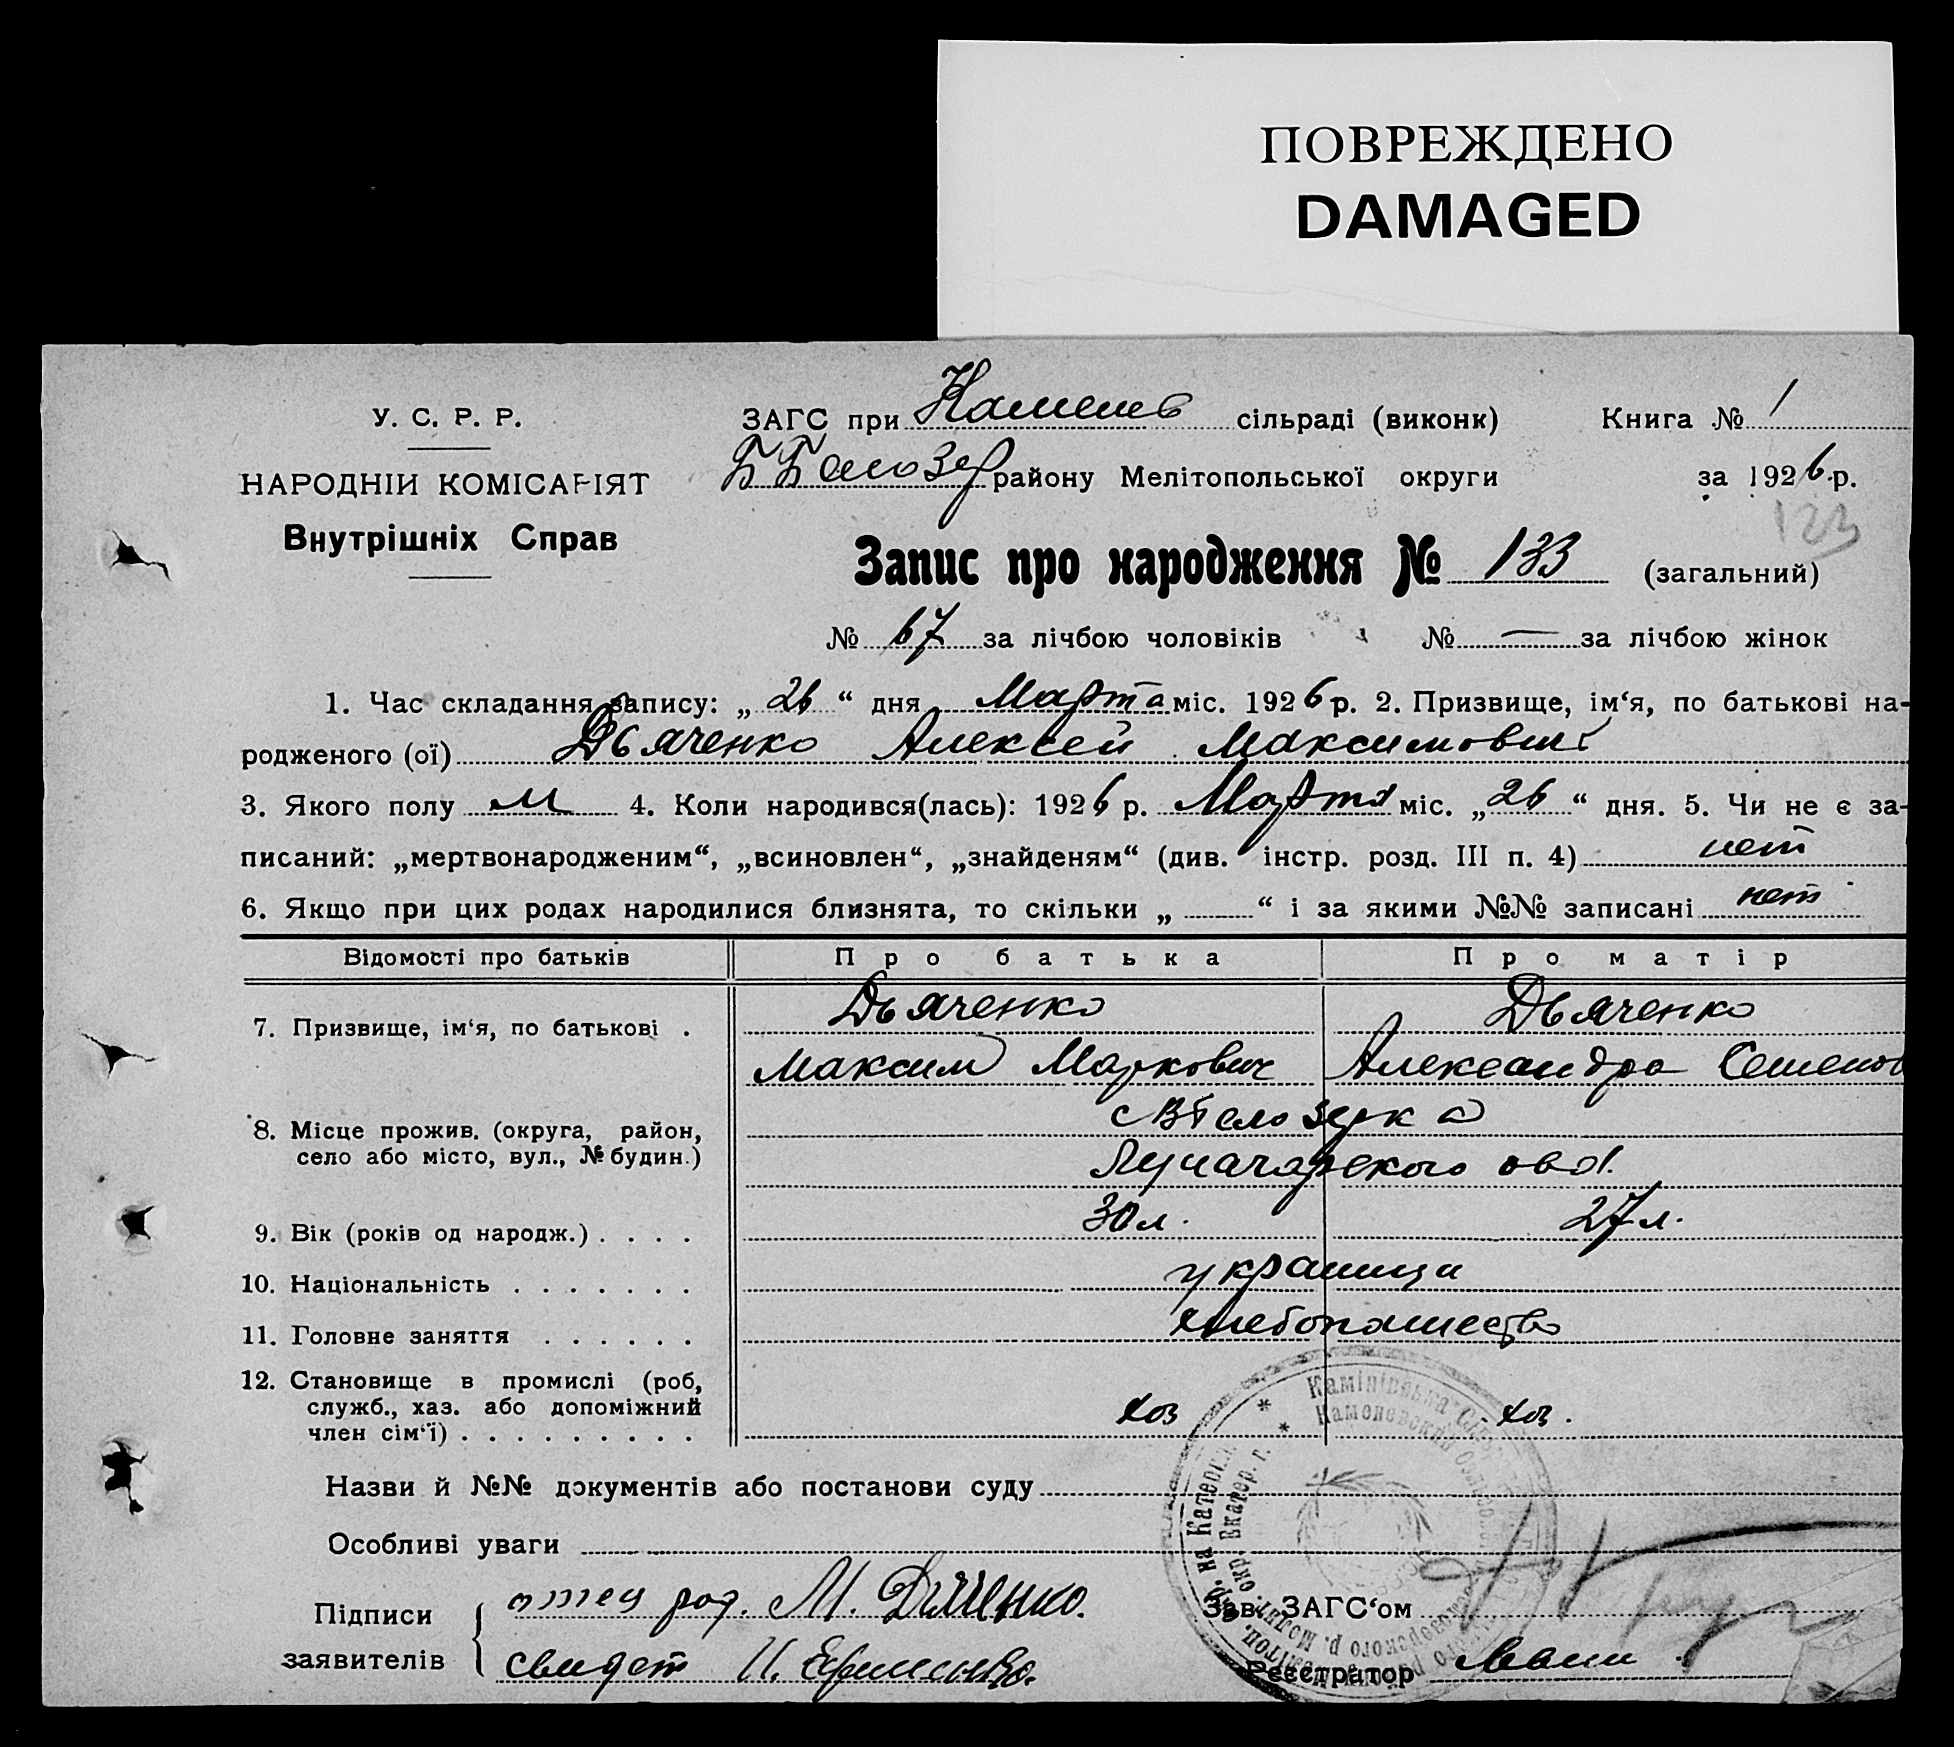 ПОВРЕЖДЕНО
DAMAGED
У. С. Р. Р.
НАРОДНІЙ КОМІСАРІЯТ
Внутрішніх Справ
ЗАГС при Каменев сільраді (виконк) Книга № 1
Б Белозер району Мелітопольської округи за 1926 р.
123
Запис про народження № 133 (загальний)
№ 67 за лічбою чоловіків № — за лічбою жінок
1. Час складання запису: „ 26 “ дня Марта міс. 1926 р. 2. Призвище, ім‘я, по батькові на-
родженого (ої) Дьяченко Алексей Максимович
3. Якого полу м 4. Коли народився(лась): 1926 р. Марта міс. „ 26 “ дня. 5. Чи не є за-
писаний: „мертвонародженим“, „всиновлен“, „знайденям“ (див. інстр. розд. III п. 4) нет
6. Якщо при цих родах народилися близнята, то скільки „ “ і за якими №№ записані нет
Відомості про батьків Про батька Про матір
7. Призвище, ім‘я, по батькові . Дьяченко Дьяченко
Максим Маркович Александра Семенов
8. Місце прожив. (округа, район, село або місто, вул., № будин.) с Белозерка
9. Вік (років од народж.) . . . . 30 л. 27 л.
10. Національність . . . . . . . украинци
11. Головне заняття . . . . . . хлебопашество
12. Становище в промислі (роб, служб., хаз. або допоміжний член сім‘ї) . . . . . . . . . хоз хоз.
Назви й №№ документів або постанови суду
Особливі уваги
Підписи заявителів
отец М. Дяченко.
свидет
Зав. ЗАГС‘ом
Реєстратор